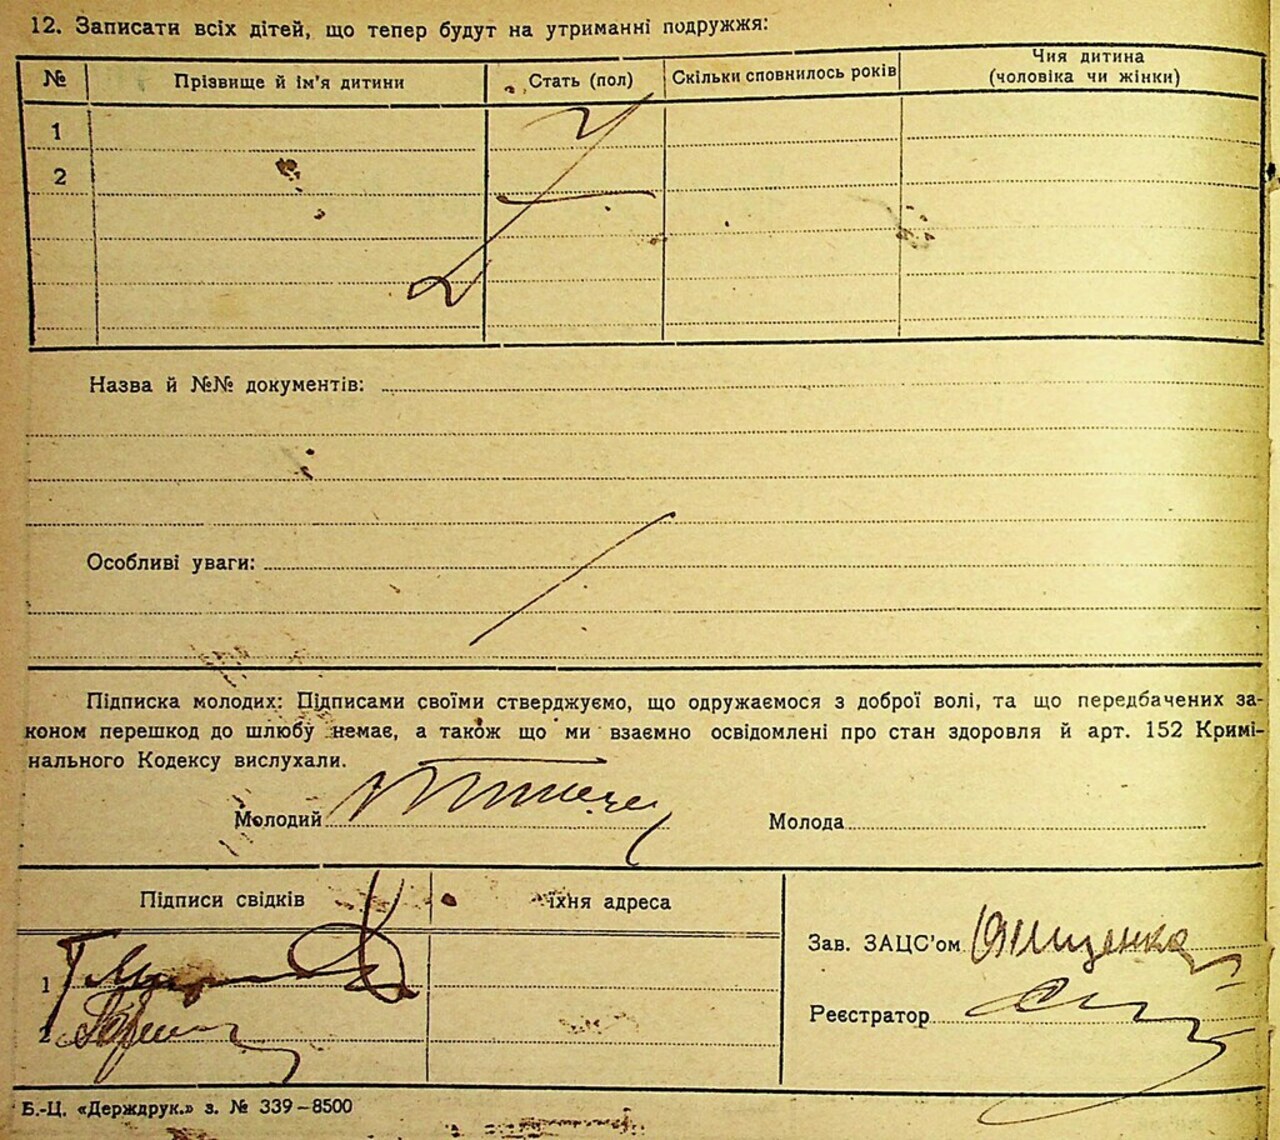 12. Записати всіх дітей, що тепер будут на утриманні подружжя:
№ Прізвище й ім'я дитини Стать (пол) Скільки сповнилось років Чия дитина (чоловіка чи жінки)
1
2
Назва й №№ документів:
Особливі уваги:
Підписка молодих: Підписами своїми стверджуємо, що одружаємося з доброї волі, та що передбачених за-
коном перешкод до шлюбу немає, а також що ми взаємно освідомлені про стан здоровля й арт. 152 Кримі-
нального Кодексу вислухали.
Молодий Молода
Підписи свідків їхня адреса
Зав. ЗАЦС'ом
1
Реєстратор
2
Б.-Ц. «Держдрук.» з. № 339—8500